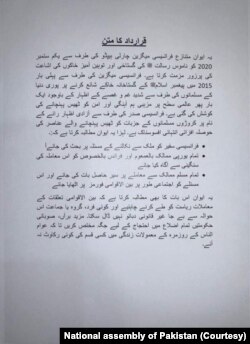 قرارداد کا متن
یہ ایوان متنازع فرانسیسی میگزین چارلی ہیبڈو کی طرف سے یکم ستمبر
2020 کو ناموس رسالت ﷺ کی گستاخی اور توہین آمیز خاکوں کی اشاعت
کی پرزور مزمت کرتا ہے۔ فرانسیسی میگزین کی طرف سے پہلی بار
2015 میں پیغمبر اسلام کے گستاخانہ خاکے شائع کرنے پر پوری دنیا
کے مسلمانوں کی طرف سے شدید غم و غصے کے اظہار کے باوجود ایک
بار پھر عالمی سطح پر مزہبی ہم آہنگی اور امن کو ٹھیس پہنچانے کی
کوشش کی گئی ہے۔ فرانسیسی صدر کی طرف سے آزادی اظہار رائے کے
نام پر کروڑوں مسلمانوں کے جزبات کو ٹھیس پہنچانے والے عناصر کی
حوصلہ افزائی انتہائی افسوسناک ہے۔ لہزا یہ ایوان مطالبہ کرتا ہے کہ
فرانسیسی سفیر کو ملک سے نکالنے کے مسئلہ پر بحث کی جائے
تمام یورپی ممالک بالعموم اور فرانس بالخصوص کو اس معاملے کی
سنگینی سے آگاہ کیا جائے
تمام مسلم ممالک سے معاملے پر سیر حاصل بات کی جائے اور اس
مسئلے کو اجتماعی طور پر بین الاقوامی فورمز پر اٹھایا جائے
یہ ایوان اس بات کا بھی مطالبہ کرتا ہے کہ بین الاقوامی تعلقات کے
معاملات ریاست کو طے کرنے چاہئیے اور کوئی فرد، گروہ یا جماعت اس
حوالہ سے بے جا غیر قانونی دباؤ نہیں ڈال سکتا۔ مزید برآں، صوبائی
حکومتیں تمام اضلاع میں احتجاج کے لیے جگہ مختص کریں تا کہ عوام
الناس کے روزمرہ کے معمولات زندگی میں کسی قسم کی کوئی رکاوٹ نہ
آئے۔
National assembly of Pakistan (Courtesy)